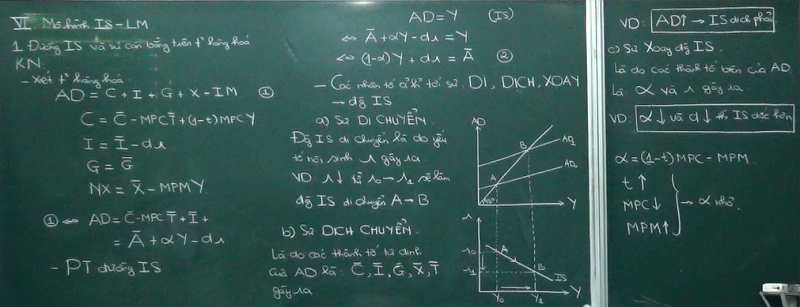 VI Mô hình IS-LM
1. Đường IS và sự cân bằng trên tt hàng hoá
KN.
- Xét tt hàng hoá
AD = C + I + G + X - IM ①
C = C̄ - MPC T̄ + (1-t) MPC Y
I = Ī - dr
G = Ḡ
NX = X̄ - MPM Y
① ⇔ AD = C̄ - MPC T̄ + Ī +
= Ā + αY - dr
- PT đường IS
AD = Y (IS)
⇔ Ā + αY - dr = Y
⇔ (1-α)Y + dr = Ā ②
- Các nhân tố a'h tới sự DI, DỊCH, XOAY
→ đg IS
a) Sự DI CHUYỂN.
Đg IS di chuyển là do yếu
tố nội sinh r gây ra
VD r↓ từ r₀ → r₁ sẽ làm
đg IS di chuyển A → B
b) Sự DỊCH CHUYỂN.
Là do các thành tố tự định
của AD là: C̄, Ī, Ḡ, X̄, T̄
gây ra
AD
AD₁
AD₀
B
A
45°
Y
r
r₀
r₁
A
B
IS
Y₀
Y₁
Y
VD: AD↑ → IS dịch phải
c) Sự Xoay đg IS.
Là do các thành tố bên của AD
Là α và r gây ra
VD: α↓ và d↓ thì IS dốc hơn
α = (1-t) MPC - MPM
t ↑
MPC ↓
MPM ↑
→ α nhỏ.